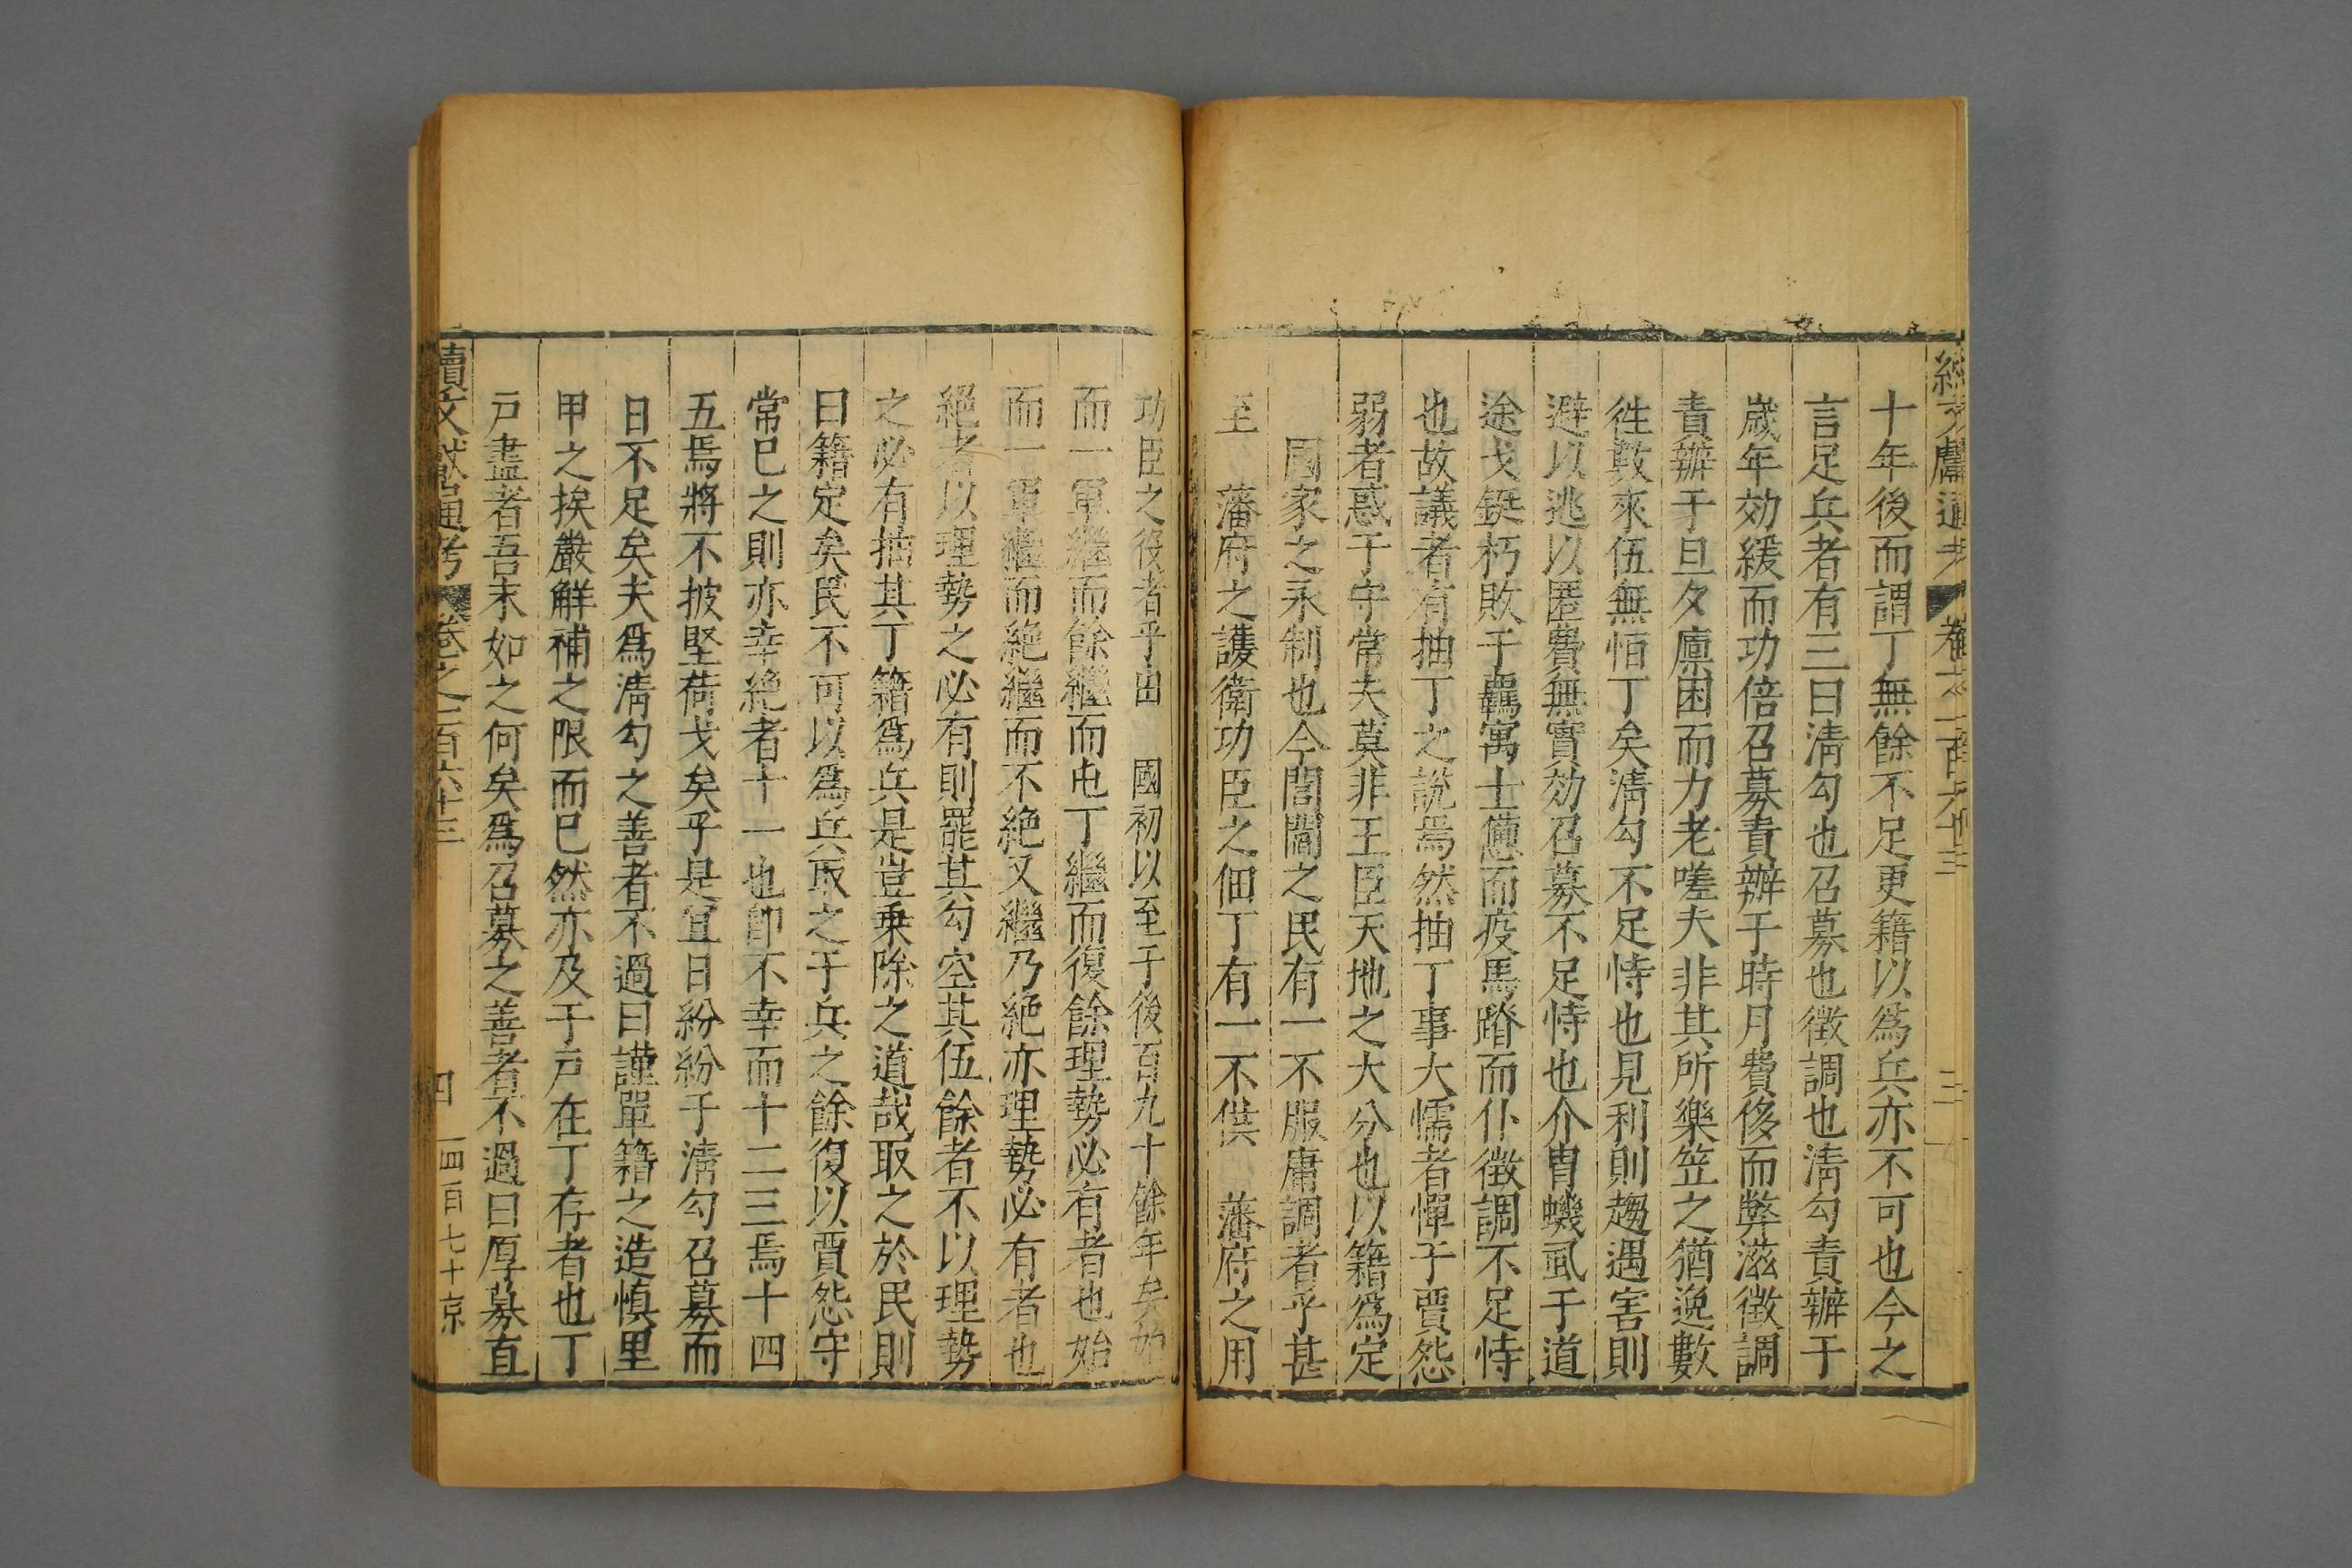 十年後而謂丁無餘不足更籍以爲兵亦不可也今之
言足兵者有三曰淸勾也召募也徵調也淸勾責辦于
歲年効緩而功倍召募責辦于時月費侈而弊滋徵調
責辦于旦夕廪困而力老嗟夫非其所樂笠之猶逸數
徃數來伍無恒丁矣淸勾不足恃也見利則趨遇害則
避以逃以匿費無實効召募不足恃也介冑蟣虱于道
途戈鋋朽敗于羈寓士憊而疫馬踏而仆徵調不足恃
也故議者有抽丁之說焉然抽丁事大懦者憚于賈怨
弱者惑于守常夫莫非王臣天地之大分也以籍爲定
國家之永制也今閭閻之民有一不服庸調者乎甚
至 藩府之護衛功臣之佃丁有一不供 藩府之用
功臣之役者乎由 國初以至于後百九十餘年矣始
而一軍繼而餘繼而屯丁繼而復餘理勢必有者也始
而一軍繼而絶繼而不絶又繼乃絶亦理勢必有者也
絶者以理勢之必有則罷其勾空其伍餘者不以理勢
之必有抽其丁籍爲兵是豈乗除之道哉取之於民則
曰籍定矣民不可以爲兵取之于兵之餘復以賈怨守
常巳之則亦幸絶者十一也卽不幸而十二三焉十四
五焉將不披堅荷戈矣乎是宜日紛紛于淸勾召募而
日不足矣夫爲淸勾之善者不過曰謹單籍之造愼里
甲之挨嚴解補之限而巳然亦及于戸在丁存者也丁
戸盡者吾末如之何矣爲召募之善者不過曰厚募直
續文獻通考 卷之一百六十三 四 四百七十 京